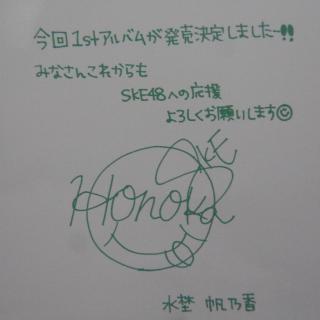 今回1stアルバムが発売決定しましたー!!
みなさんこれからも
SKE48への応援
よろしくお願いします☺
SKE
Honoka
水埜 帆乃香